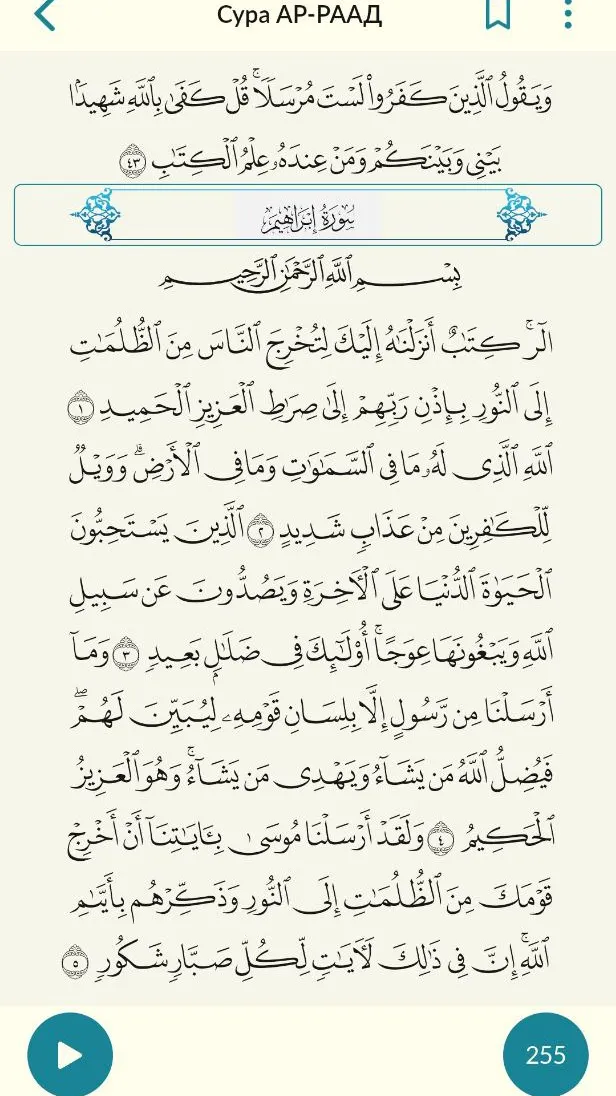 Сура АР-РААД
وَيَقُولُ ٱلَّذِينَ كَفَرُوا۟ لَسْتَ مُرْسَلًا ۚ قُلْ كَفَىٰ بِٱللَّهِ شَهِيدًۢا
بَيْنِى وَبَيْنَكُمْ وَمَنْ عِندَهُۥ عِلْمُ ٱلْكِتَٰبِ ٤٣
سُورَةُ إِبْرَاهِيمَ
بِسْمِ ٱللَّهِ ٱلرَّحْمَٰنِ ٱلرَّحِيمِ
الٓر ۚ كِتَٰبٌ أَنزَلْنَٰهُ إِلَيْكَ لِتُخْرِجَ ٱلنَّاسَ مِنَ ٱلظُّلُمَٰتِ
إِلَى ٱلنُّورِ بِإِذْنِ رَبِّهِمْ إِلَىٰ صِرَٰطِ ٱلْعَزِيزِ ٱلْحَمِيدِ ١
ٱللَّهِ ٱلَّذِى لَهُۥ مَا فِى ٱلسَّمَٰوَٰتِ وَمَا فِى ٱلْأَرْضِ ۗ وَوَيْلٌ
لِّلْكَٰفِرِينَ مِنْ عَذَابٍ شَدِيدٍ ٢ ٱلَّذِينَ يَسْتَحِبُّونَ
ٱلْحَيَوٰةَ ٱلدُّنْيَا عَلَى ٱلْءَاخِرَةِ وَيَصُدُّونَ عَن سَبِيلِ
ٱللَّهِ وَيَبْغُونَهَا عِوَجًا ۚ أُو۟لَٰٓئِكَ فِى ضَلَٰلٍۭ بَعِيدٍ ٣ وَمَآ
أَرْسَلْنَا مِن رَّسُولٍ إِلَّا بِلِسَانِ قَوْمِهِۦ لِيُبَيِّنَ لَهُمْ ۖ
فَيُضِلُّ ٱللَّهُ مَن يَشَآءُ وَيَهْدِى مَن يَشَآءُ ۚ وَهُوَ ٱلْعَزِيزُ
ٱلْحَكِيمُ ٤ وَلَقَدْ أَرْسَلْنَا مُوسَىٰ بِـَٔايَٰتِنَآ أَنْ أَخْرِجْ
قَوْمَكَ مِنَ ٱلظُّلُمَٰتِ إِلَى ٱلنُّورِ وَذَكِّرْهُم بِأَيَّىٰمِ
ٱللَّهِ ۚ إِنَّ فِى ذَٰلِكَ لَءَايَٰتٍ لِّكُلِّ صَبَّارٍ شَكُورٍ ٥
255